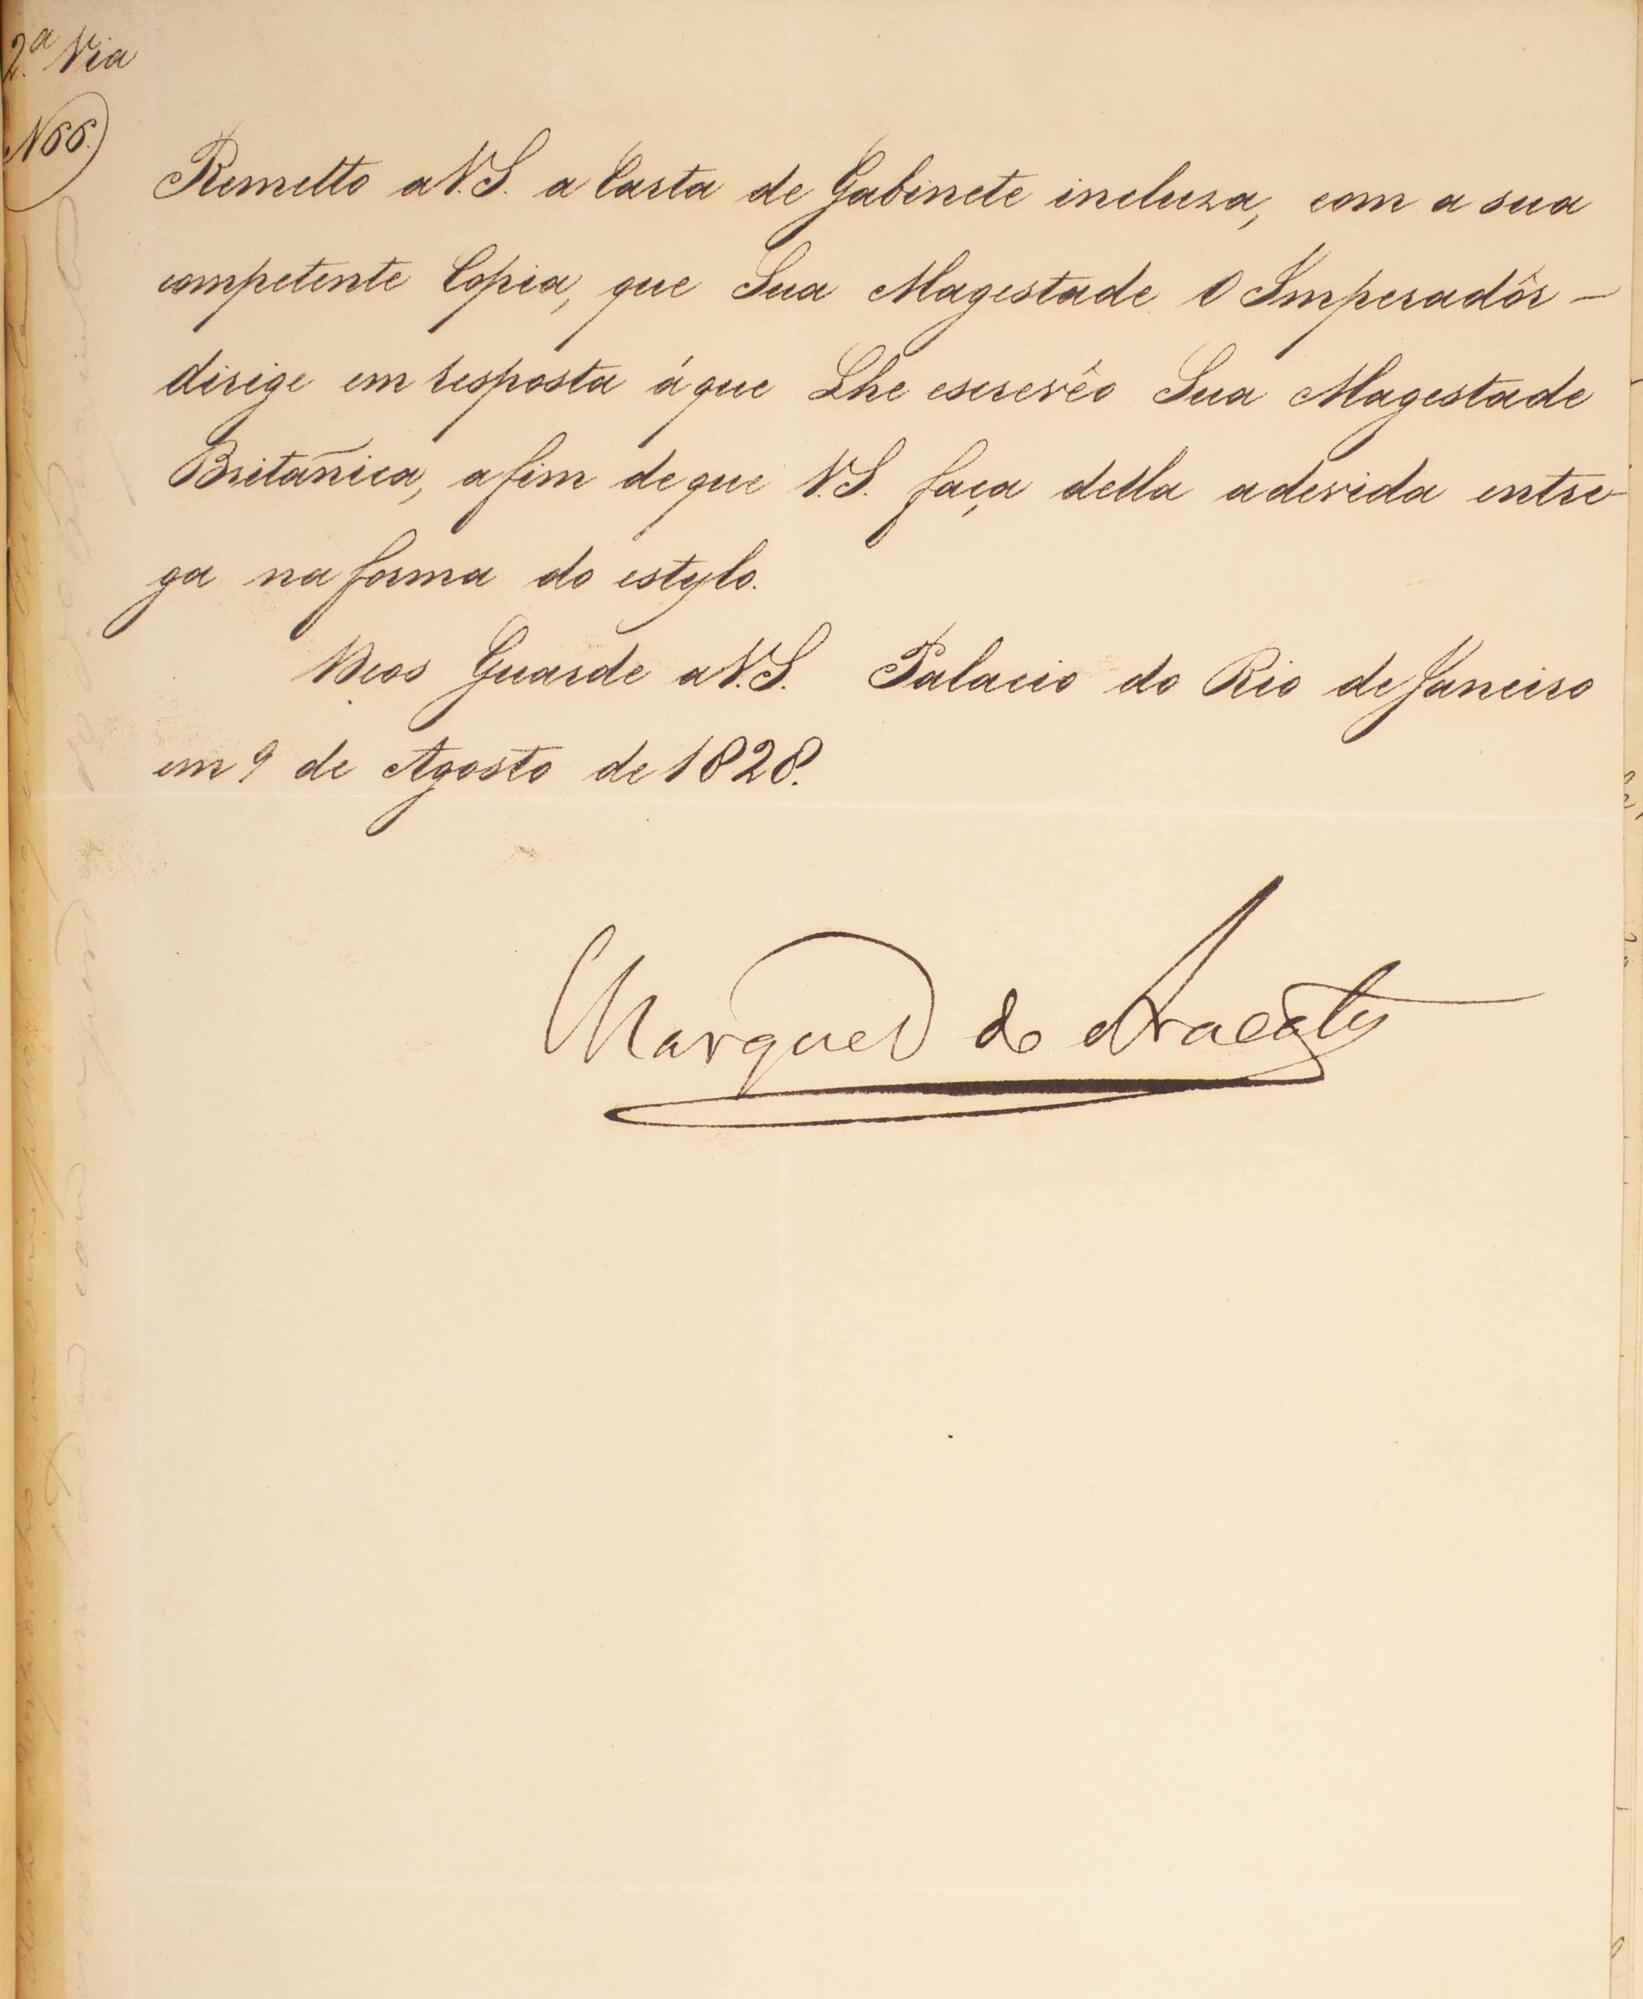 2.ª Via
N 66.
Remetto a V.S. a Carta de Gabinete incluza, com a sua
competente Copia, que Sua Magestade O Imperadôr –
dirige em resposta á que Lhe escrevêo Sua Magestade
Britañica, afim de que V.S. faça della a devida entre-
ga na forma do estylo.
Deos Guarde a V.S. Palacio do Rio de Janeiro
em 9 de Agosto de 1828.
Marquez de Aracaty